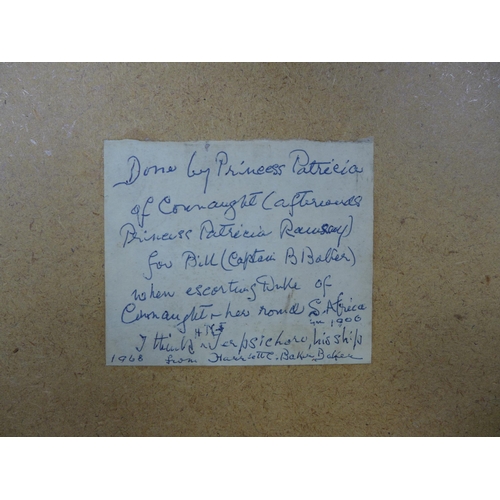 Done by Princess Patricia
of Connaught (afterwards
Princess Patricia Ramsay)
for Bill (Captain B Baker)
when escorting Duke of
Connaught & her round S. Africa
in 1906
HMS
I think Terpsichore, his ship
1968 from Harriette. Baker Baker